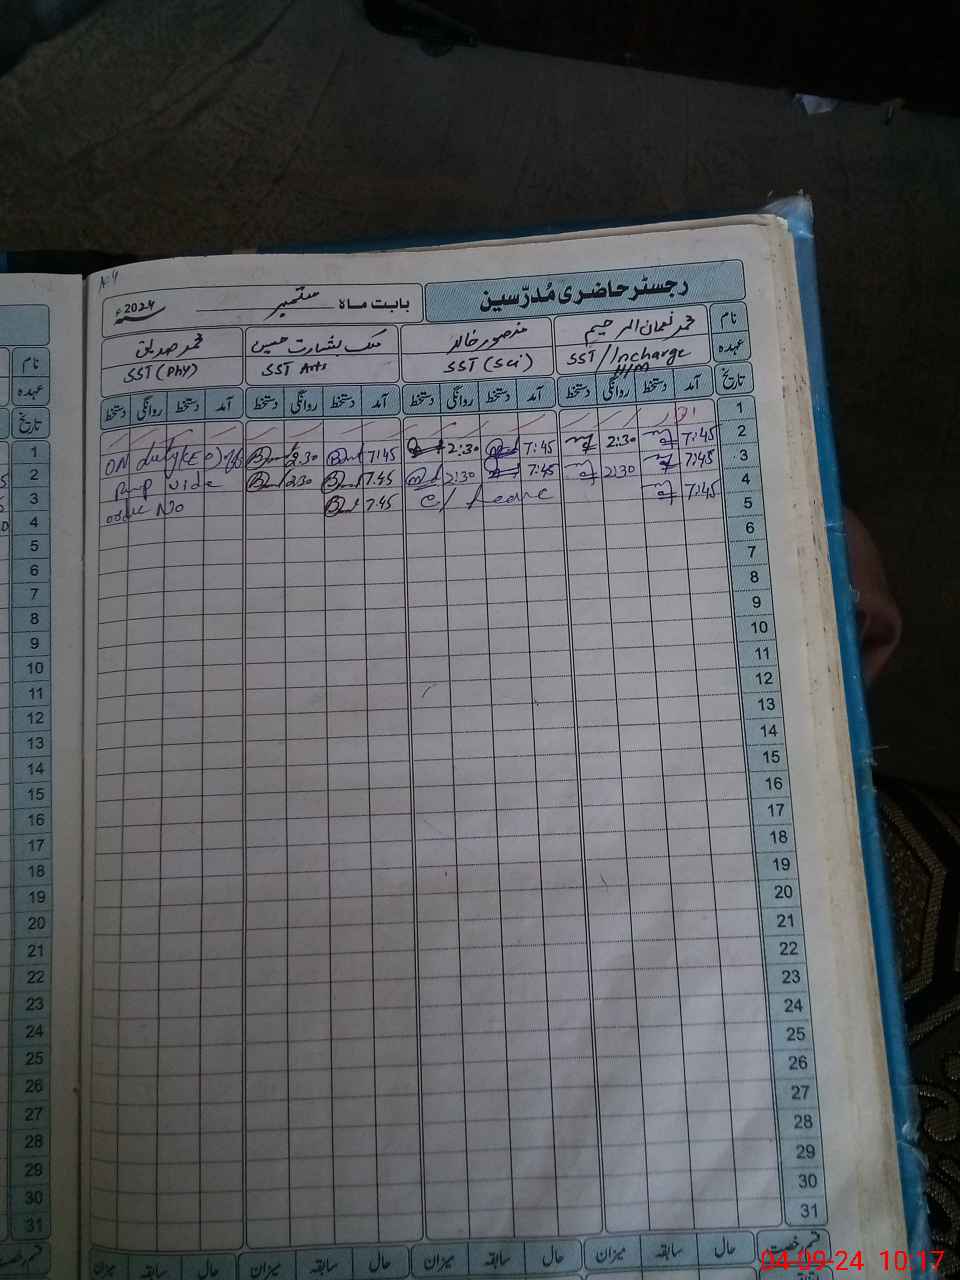 رجسٹر حاضری مُدرّسین
بابت ماہ ستمبر 2024ء
نام محمد نعمان الرحیم منصور خالد ملک بشارت حسین محمد صدیق نام
عہدہ SST/Incharge H/M SST (Sci) SST Arts SST (Phy) عہدہ
تاریخ آمد دستخط روانگی دستخط آمد دستخط روانگی دستخط آمد دستخط روانگی دستخط آمد دستخط روانگی دستخط تاریخ
1
2 7:45 2:30 7:45 2:30 7:45 2:30 ON duty 1
3 7:45 2:30 7:45 2:30 7:45 2:30 vide 2
4 7:45 C/ Leave 7:45 No 3
5 4
6 5
7 6
8 7
9 8
10 9
11 10
12 11
13 12
14 13
15 14
16 15
17 16
18 17
19 18
20 19
21 20
22 21
23 22
24 23
25 24
26 25
27 26
28 27
29 28
30 29
31 30
31
قسم رخصت حال سابقہ میزان حال سابقہ میزان حال سابقہ میزان حال سابقہ میزان
04-09-24 10:17